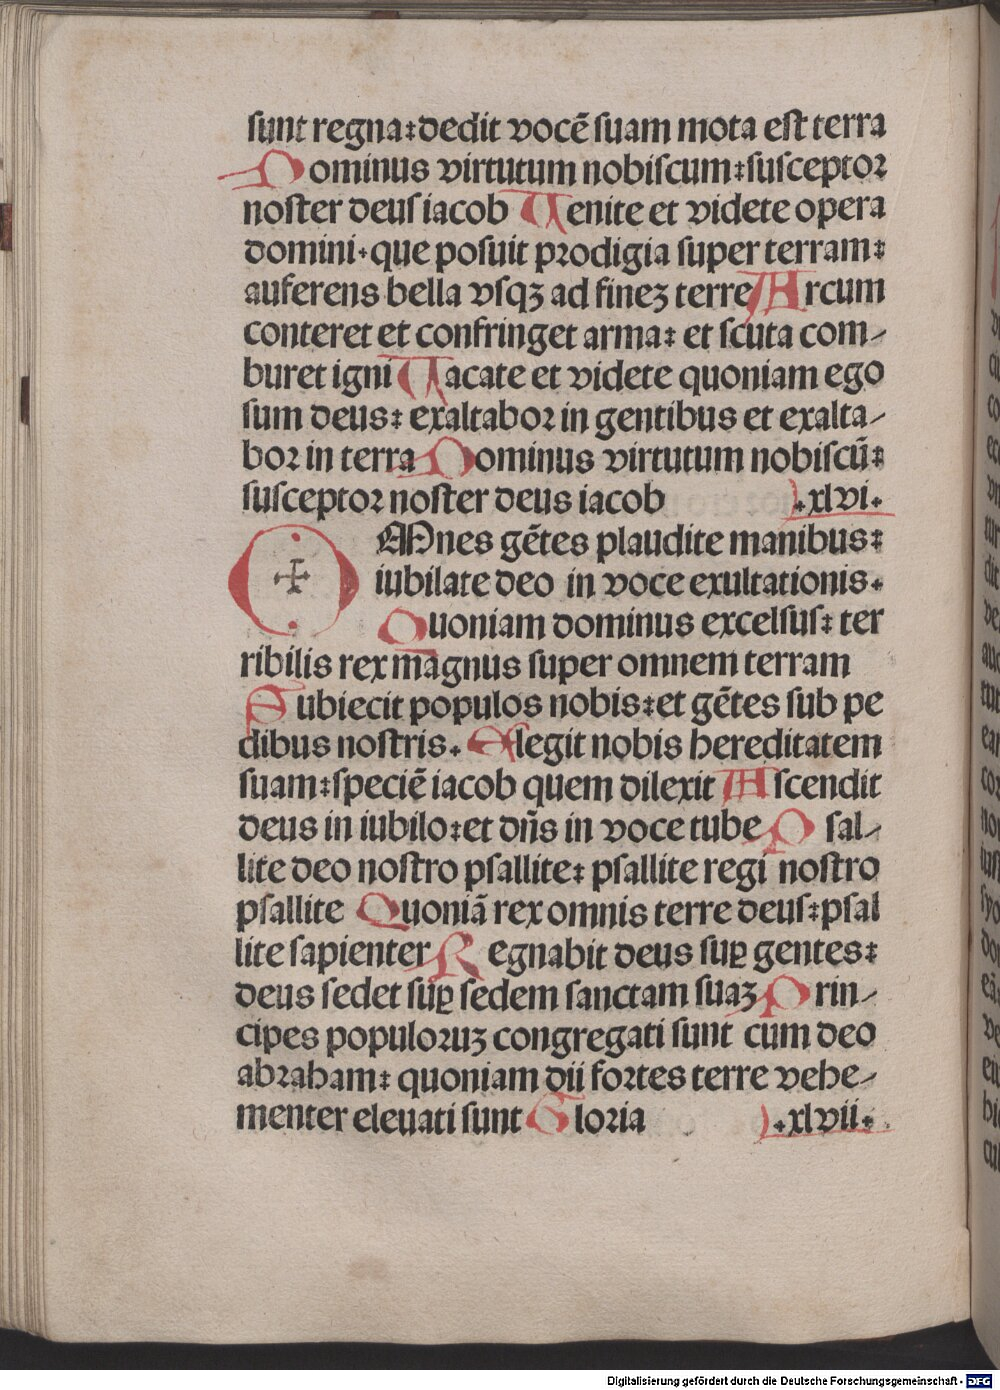 sunt regna: dedit vocē suam mota est terra
Dominus virtutum nobiscum: susceptor
noster deus iacob Uenite et videte opera
domini. que posuit prodigia super terram:
auferens bella vsqꝫ ad fineꝫ terre Arcum
conteret et confringet arma: et scuta com-
buret igni Uacate et videte quoniam ego
sum deus: exaltabor in gentibus et exalta-
bor in terra Dominus virtutum nobiscū:
susceptor noster deus iacob .xlvi.
OMnes gētes plaudite manibus:
iubilate deo in voce exultationis.
Quoniam dominus excelsus: ter
ribilis rex magnus super omnem terram
Subiecit populos nobis: et gētes sub pe
dibus nostris. Elegit nobis hereditatem
suam: speciē iacob quem dilexit Ascendit
deus in iubilo: et dn̄s in voce tube Psal-
lite deo nostro psallite: psallite regi nostro
psallite Quoniā rex omnis terre deus: psal
lite sapienter Regnabit deus suꝑ gentes:
deus sedet suꝑ sedem sanctam suaꝫ Prin-
cipes populoruꝫ congregati sunt cum deo
abraham: quoniam dii fortes terre vehe-
menter eleuati sunt Gloria .xlvii.
Digitalisierung gefördert durch die Deutsche Forschungsgemeinschaft - DFG